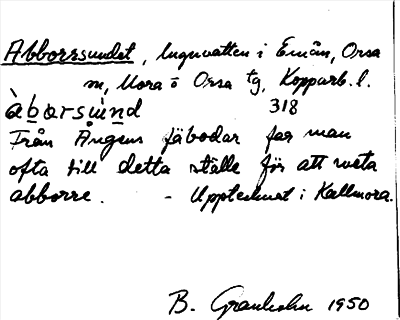 Abborrsundet, lugnvatten i Emån, Orsa
m, Mora o Orsa tg, Kopparb. l.
àbarsùnd 318
Från Ångens fäbodar far man
ofta till detta ställe för att meta
abborre. - Upptecknat i Kallmora.
B. Granholm 1950